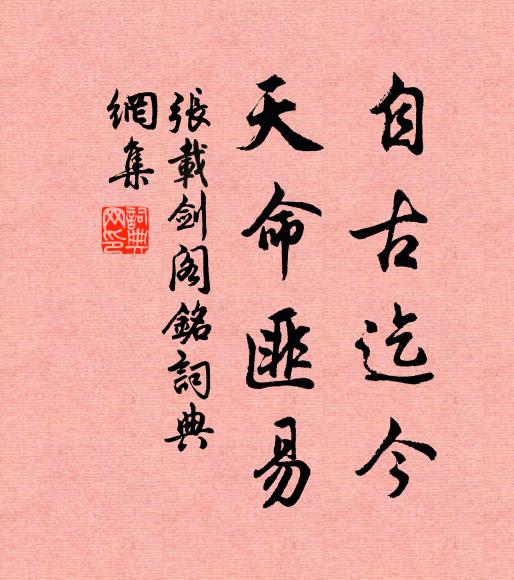 自古迄今
天命匪易
張載剑阁銘詞典
網集
詞典
网印